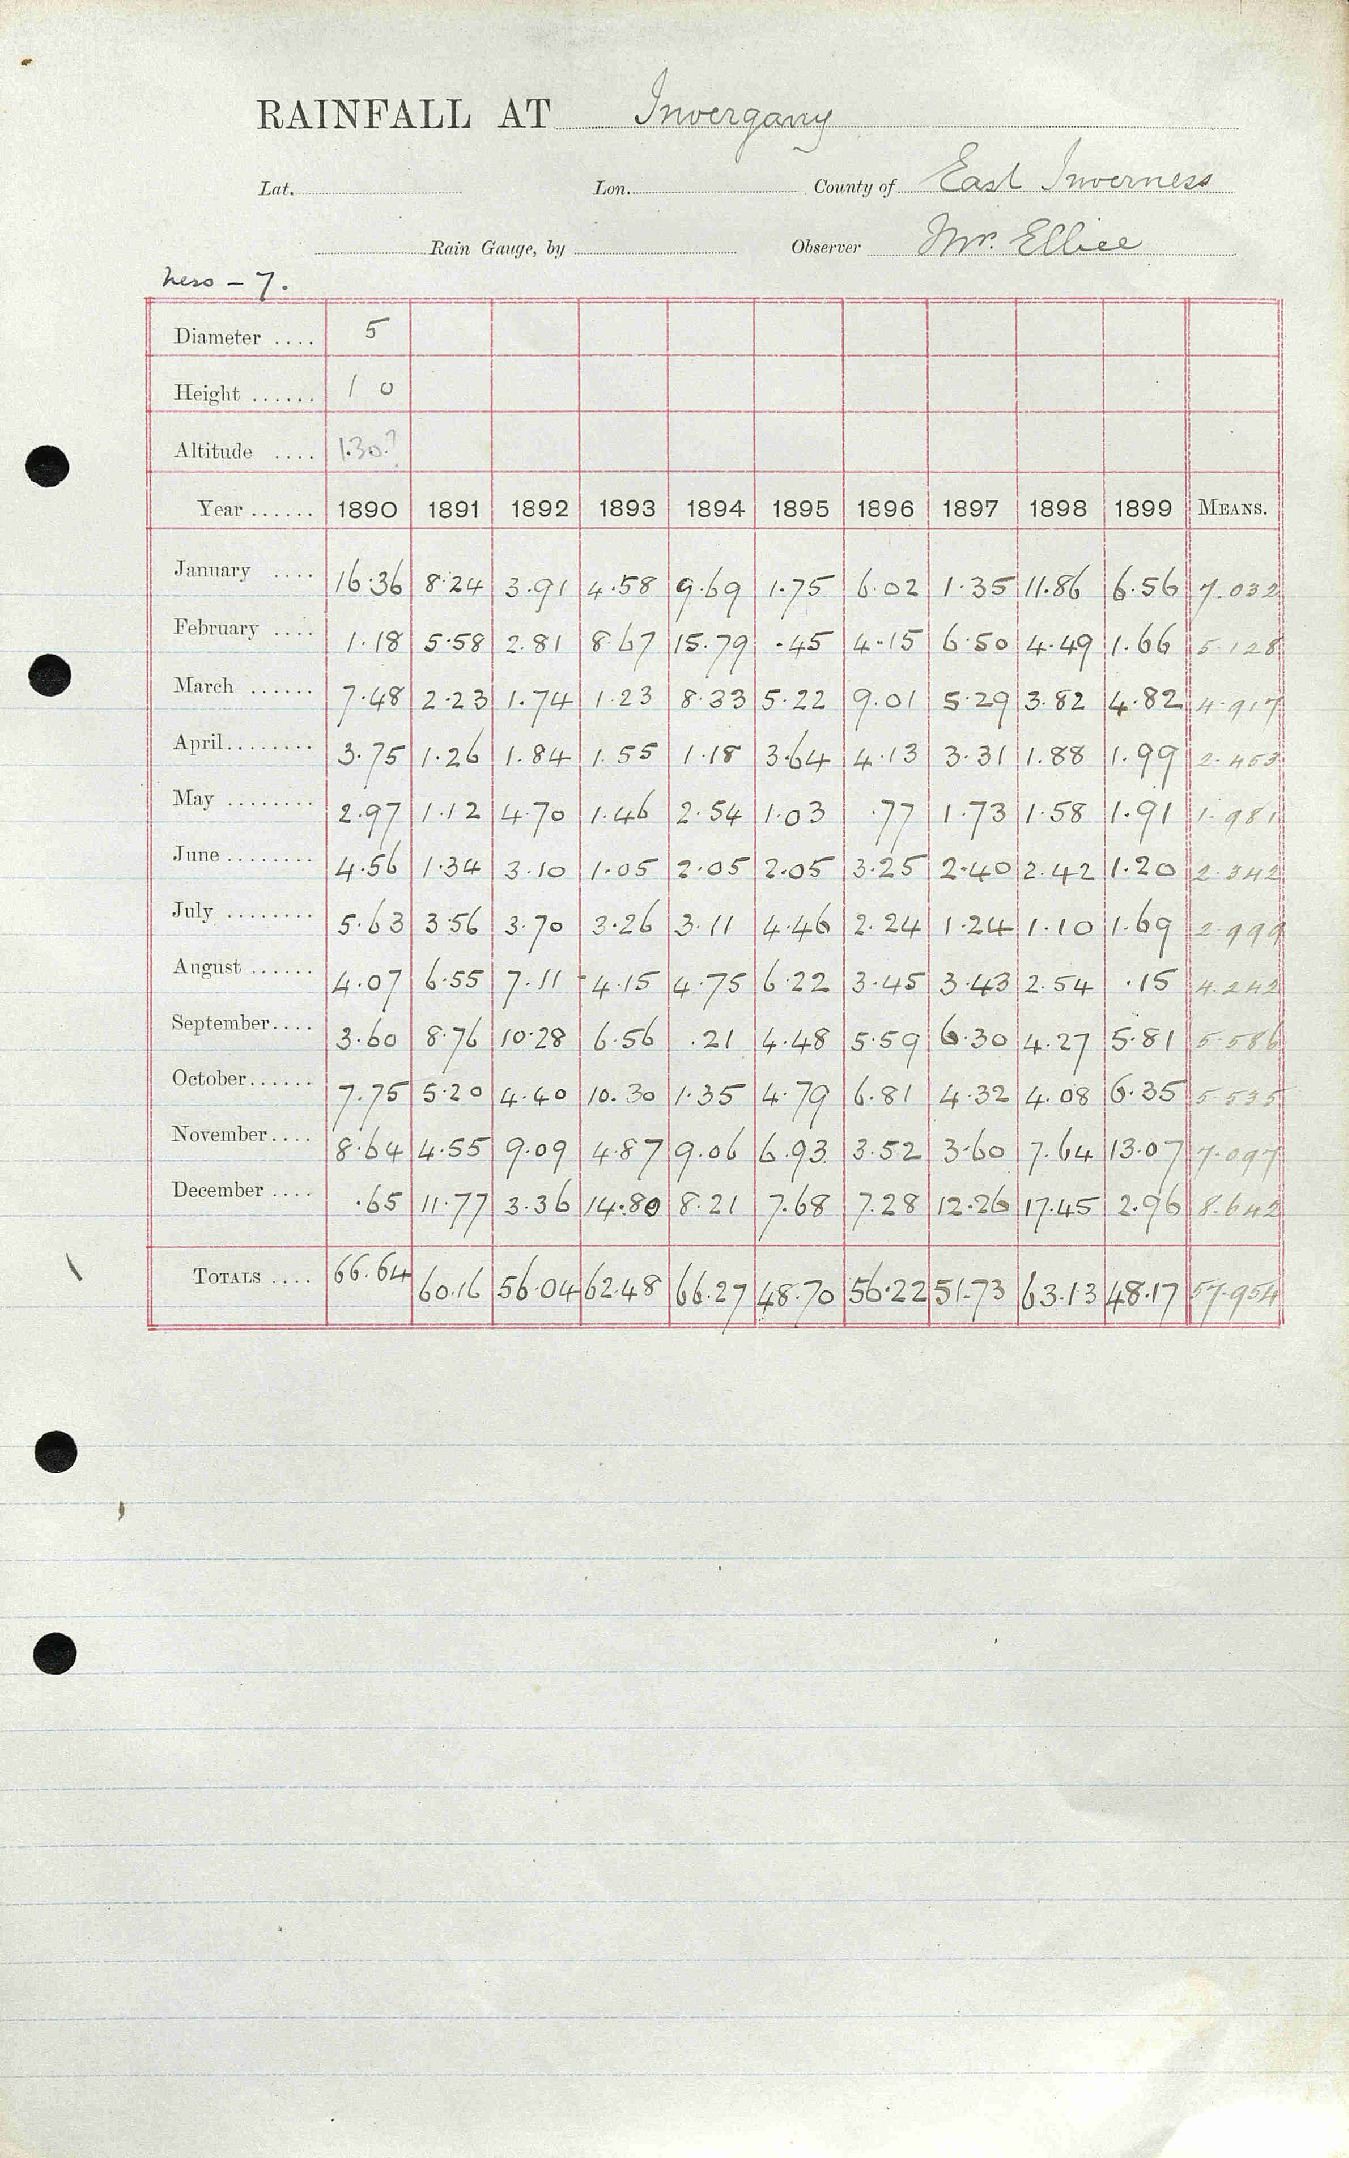 RAINFALL AT Invergarry
Lat. Lon. County of East Inverness
Rain Gauge, by Observer Mr. Ellice
ness - 7.
Diameter .... 5
Height ...... 1 0
Altitude .... 130?
Year ...... 1890 1891 1892 1893 1894 1895 1896 1897 1898 1899 MEANS.
January .... 16.36 8.24 3.91 4.58 9.69 1.75 6.02 1.35 11.86 6.56 7.032
February .... 1.18 5.58 2.81 8.67 15.79 .45 4.15 6.50 4.49 1.66 5.128
March ...... 7.48 2.23 1.74 1.23 8.33 5.22 9.01 5.29 3.82 4.82 4.917
April........ 3.75 1.26 1.84 1.55 1.18 3.64 4.13 3.31 1.88 1.99 2.453
May ........ 2.97 1.12 4.70 1.46 2.54 1.03 .77 1.73 1.58 1.91 1.981
June ........ 4.56 1.34 3.10 1.05 2.05 2.05 3.25 2.40 2.42 1.20 2.342
July ........ 5.63 3.56 3.70 3.26 3.11 4.46 2.24 1.24 1.10 1.69 2.999
August ...... 4.07 6.55 7.11 4.15 4.75 6.22 3.45 3.43 2.54 .15 4.242
September.... 3.60 8.76 10.28 6.56 .21 4.48 5.59 6.30 4.27 5.81 5.586
October...... 7.75 5.20 4.40 10.30 1.35 4.79 6.81 4.32 4.08 6.35 5.535
November.... 8.64 4.55 9.09 4.87 9.06 6.93 3.52 3.60 7.64 13.07 7.097
December .... .65 11.77 3.36 14.80 8.21 7.68 7.28 12.26 17.45 2.96 8.642
TOTALS .... 66.64 60.16 56.04 62.48 66.27 48.70 56.22 51.73 63.13 48.17 57.954